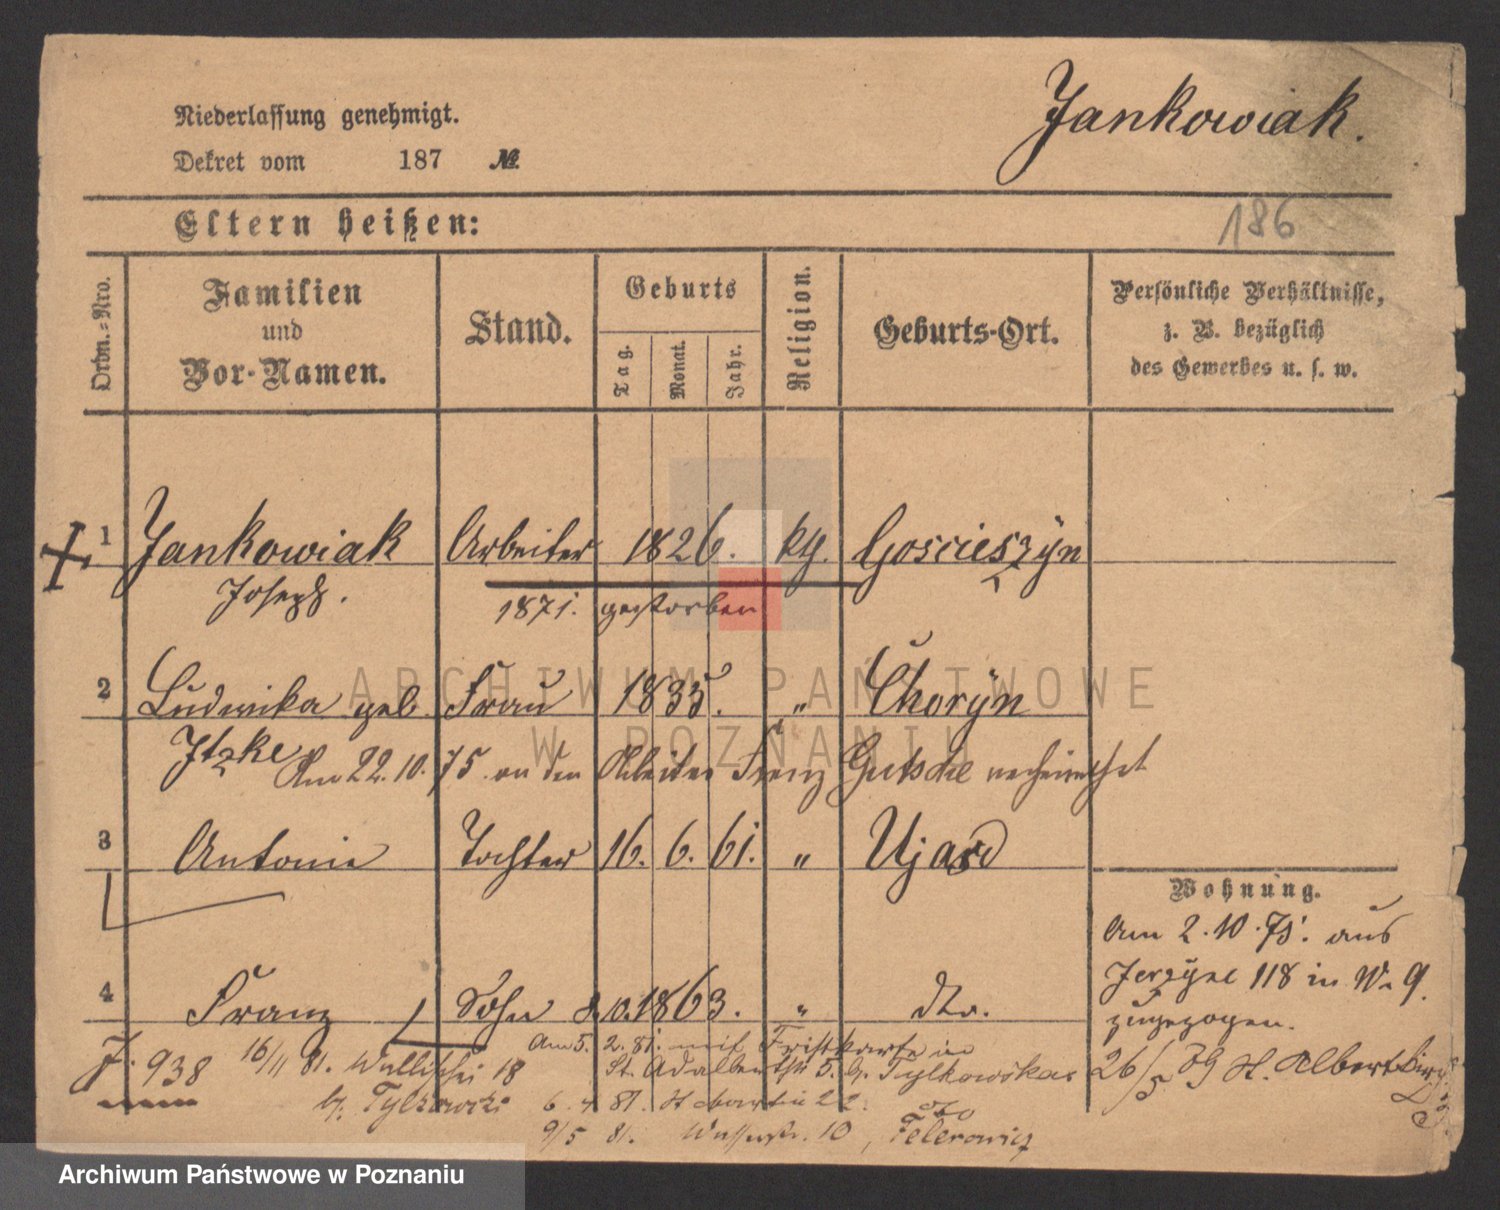 Jankowiak.
Niederlassung genehmigt.
Dekret vom 187 №.
186
Eltern heißen:
Ordn.=Nro.
Familien
und
Vor-Namen.
Stand.
Geburts
Tag.
Monat.
Jahr.
Religion.
Geburts-Ort.
Persönliche Verhältnisse,
z. B. bezüglich
des Gewerbes u. s. w.
1 Jankowiak Arbeiter 1826. kth. Goscieszyn
Joseph.
1871. gestorben
2 Ludwika geb. Frau 1835. „ Choryn
Am 22.10.75 an den Arbeiter Franz verheirathet
3 Antonie Tochter 16. 6. 61. „ Ujasd
Wohnung.
Am 2.10.75. aus
Jerzyce 118 in W. 9.
zugezogen.
4 Franz Sohn 8.10.1863. „ dto.
J. 938 16/11 81. Wallischei 18
Am 5. 2. 81. mit Fristkarte in
St. Adalbert 5. b. Tylkowska
26/5 St. Albert
6. 4 81. St Martin 22.
9/5 81. 10, Felerowicz
ARCHIWUM PAŃSTWOWE
W POZNANIU
Archiwum Państwowe w Poznaniu